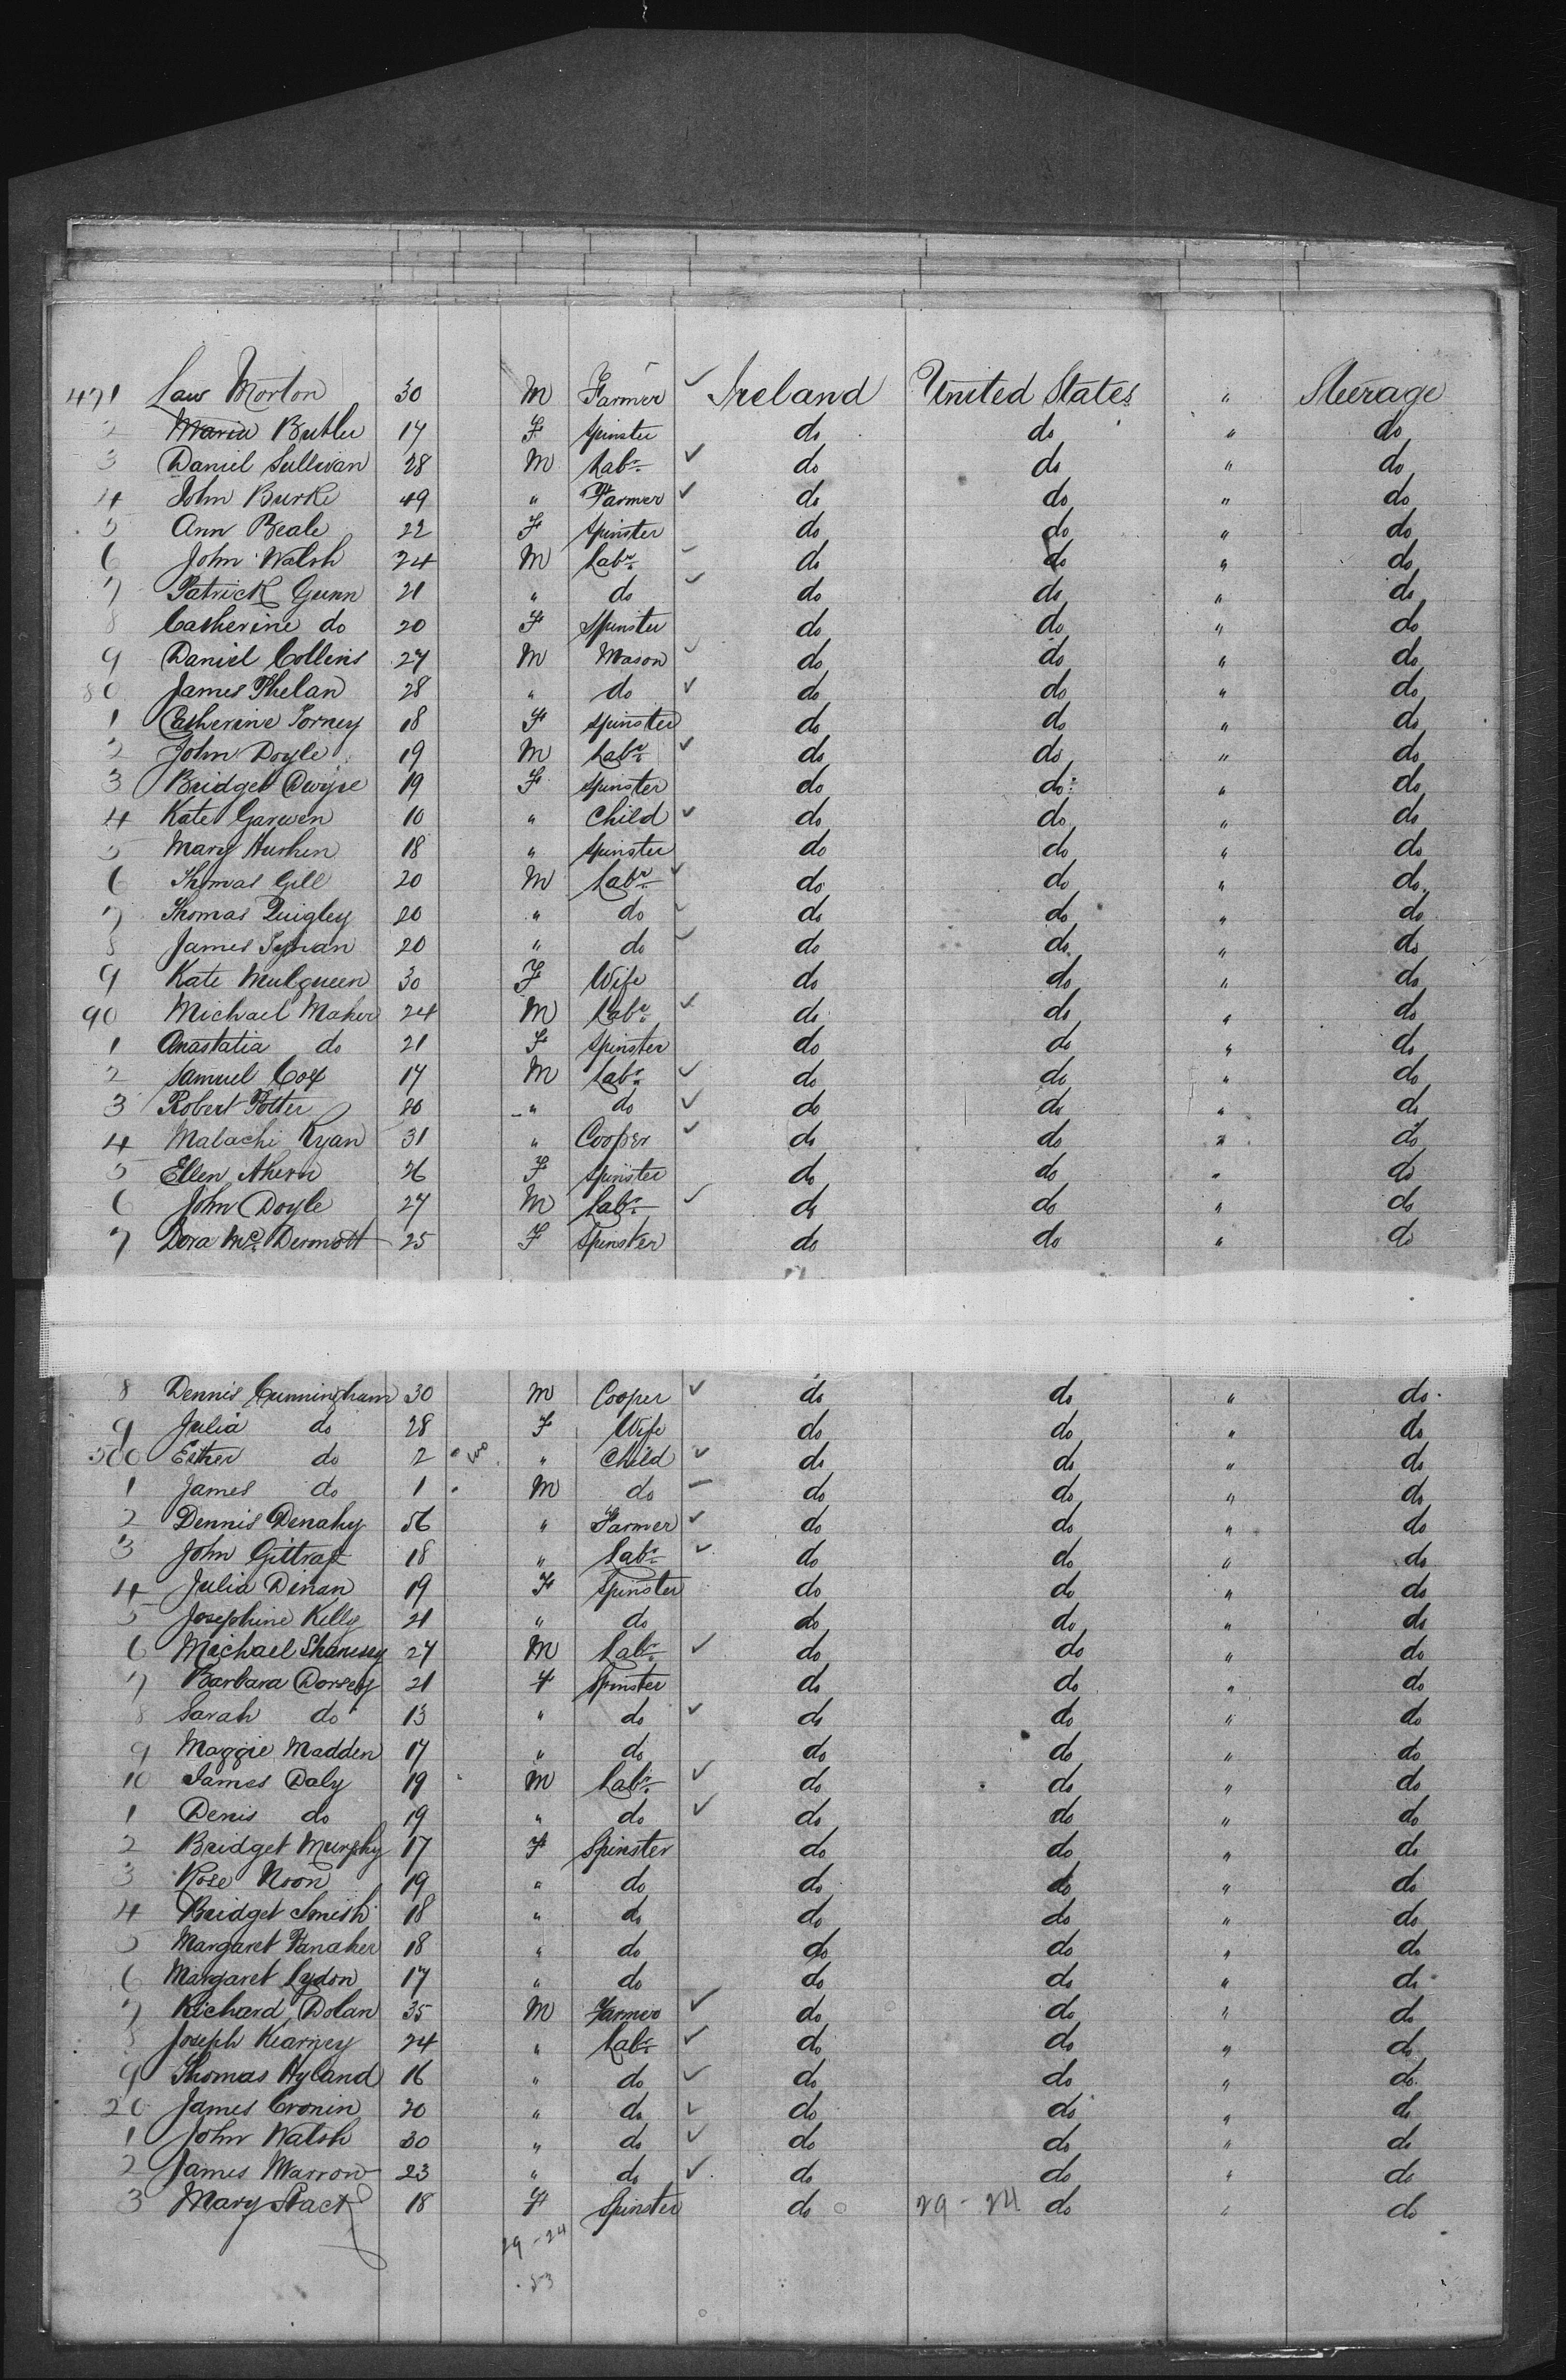 471 Law Morton 30 M Farmer ✓ Ireland United States " Steerage
2 Maria Butler 17 F Spinster do do " do
3 Daniel Sullivan 28 M Labr ✓ do do " do
4 John Burke 49 " Farmer ✓ do do " do
5 Ann Beale 22 F Spinster do do " do
6 John Walsh 24 M Labr ✓ do do " do
7 Patrick Gunn 21 " do ✓ do do " do
8 Catherine do 20 F Spinster do do " do
9 Daniel Collins 27 M Mason ✓ do do " do
80 James Phelan 28 " do ✓ do do " do
1 Catherine Torney 18 F Spinster do do " do
2 John Doyle 19 M Labr ✓ do do " do
3 Bridget Dwyre 19 F Spinster do do " do
4 Kate Garwen 10 " Child ✓ do do " do
5 Mary Hurken 18 " Spinster do do " do
6 Thomas Gill 20 M Labr ✓ do do " do
7 Thomas Quigley 20 " do ✓ do do " do
8 James 20 " do ✓ do do " do
9 Kate Mulqueen 30 F Wife do do " do
90 Michael Maher 24 M Labr ✓ do do " do
1 Anastatia do 21 F Spinster do do " do
2 Samuel Cox 17 M Labr ✓ do do " do
3 Robert Potter 20 " do ✓ do do " do
4 Malachi Ryan 31 " Cooper ✓ do do " do
5 Ellen Ahern 26 F Spinster do do " do
6 John Doyle 27 M Labr ✓ do do " do
7 Dora McDermott 25 F Spinster do do " do
8 Dennis Cunningham 30 M Cooper ✓ do do " do
9 Julia do 28 F Wife do do " do
500 Esther do 2 " Child ✓ do do " do
1 James do 1 M do do do " do
2 Dennis Denahy 56 " Farmer ✓ do do " do
3 John Gittrap 18 " Labr ✓ do do " do
4 Julia Dinan 19 F Spinster do do " do
5 Josephine Kelly 21 " do do do " do
6 Michael Shanessy 27 M Labr ✓ do do " do
7 Barbara Dorsey 21 F Spinster do do " do
8 Sarah do 13 " do ✓ do do " do
9 Maggie Madden 17 " do do do " do
10 James Daly 19 M Labr ✓ do do " do
1 Denis do 19 " do ✓ do do " do
2 Bridget Murphy 17 F Spinster do do " do
3 Rose Noon 19 " do do do " do
4 Bridget Smith 18 " do do do " do
5 Margaret Fanaher 18 " do do do " do
6 Margaret Lydon 17 " do do do " do
7 Richard Dolan 35 M Farmer ✓ do do " do
8 Joseph Kearney 24 " Labr ✓ do do " do
9 Thomas Hyland 16 " do ✓ do do " do
20 James Cronin 20 " do ✓ do do " do
1 John Walsh 30 " do ✓ do do " do
2 James Marrow 23 " do ✓ do do " do
3 Mary Stack 18 F Spinster do 29 - 24 do " do
29 - 24
53